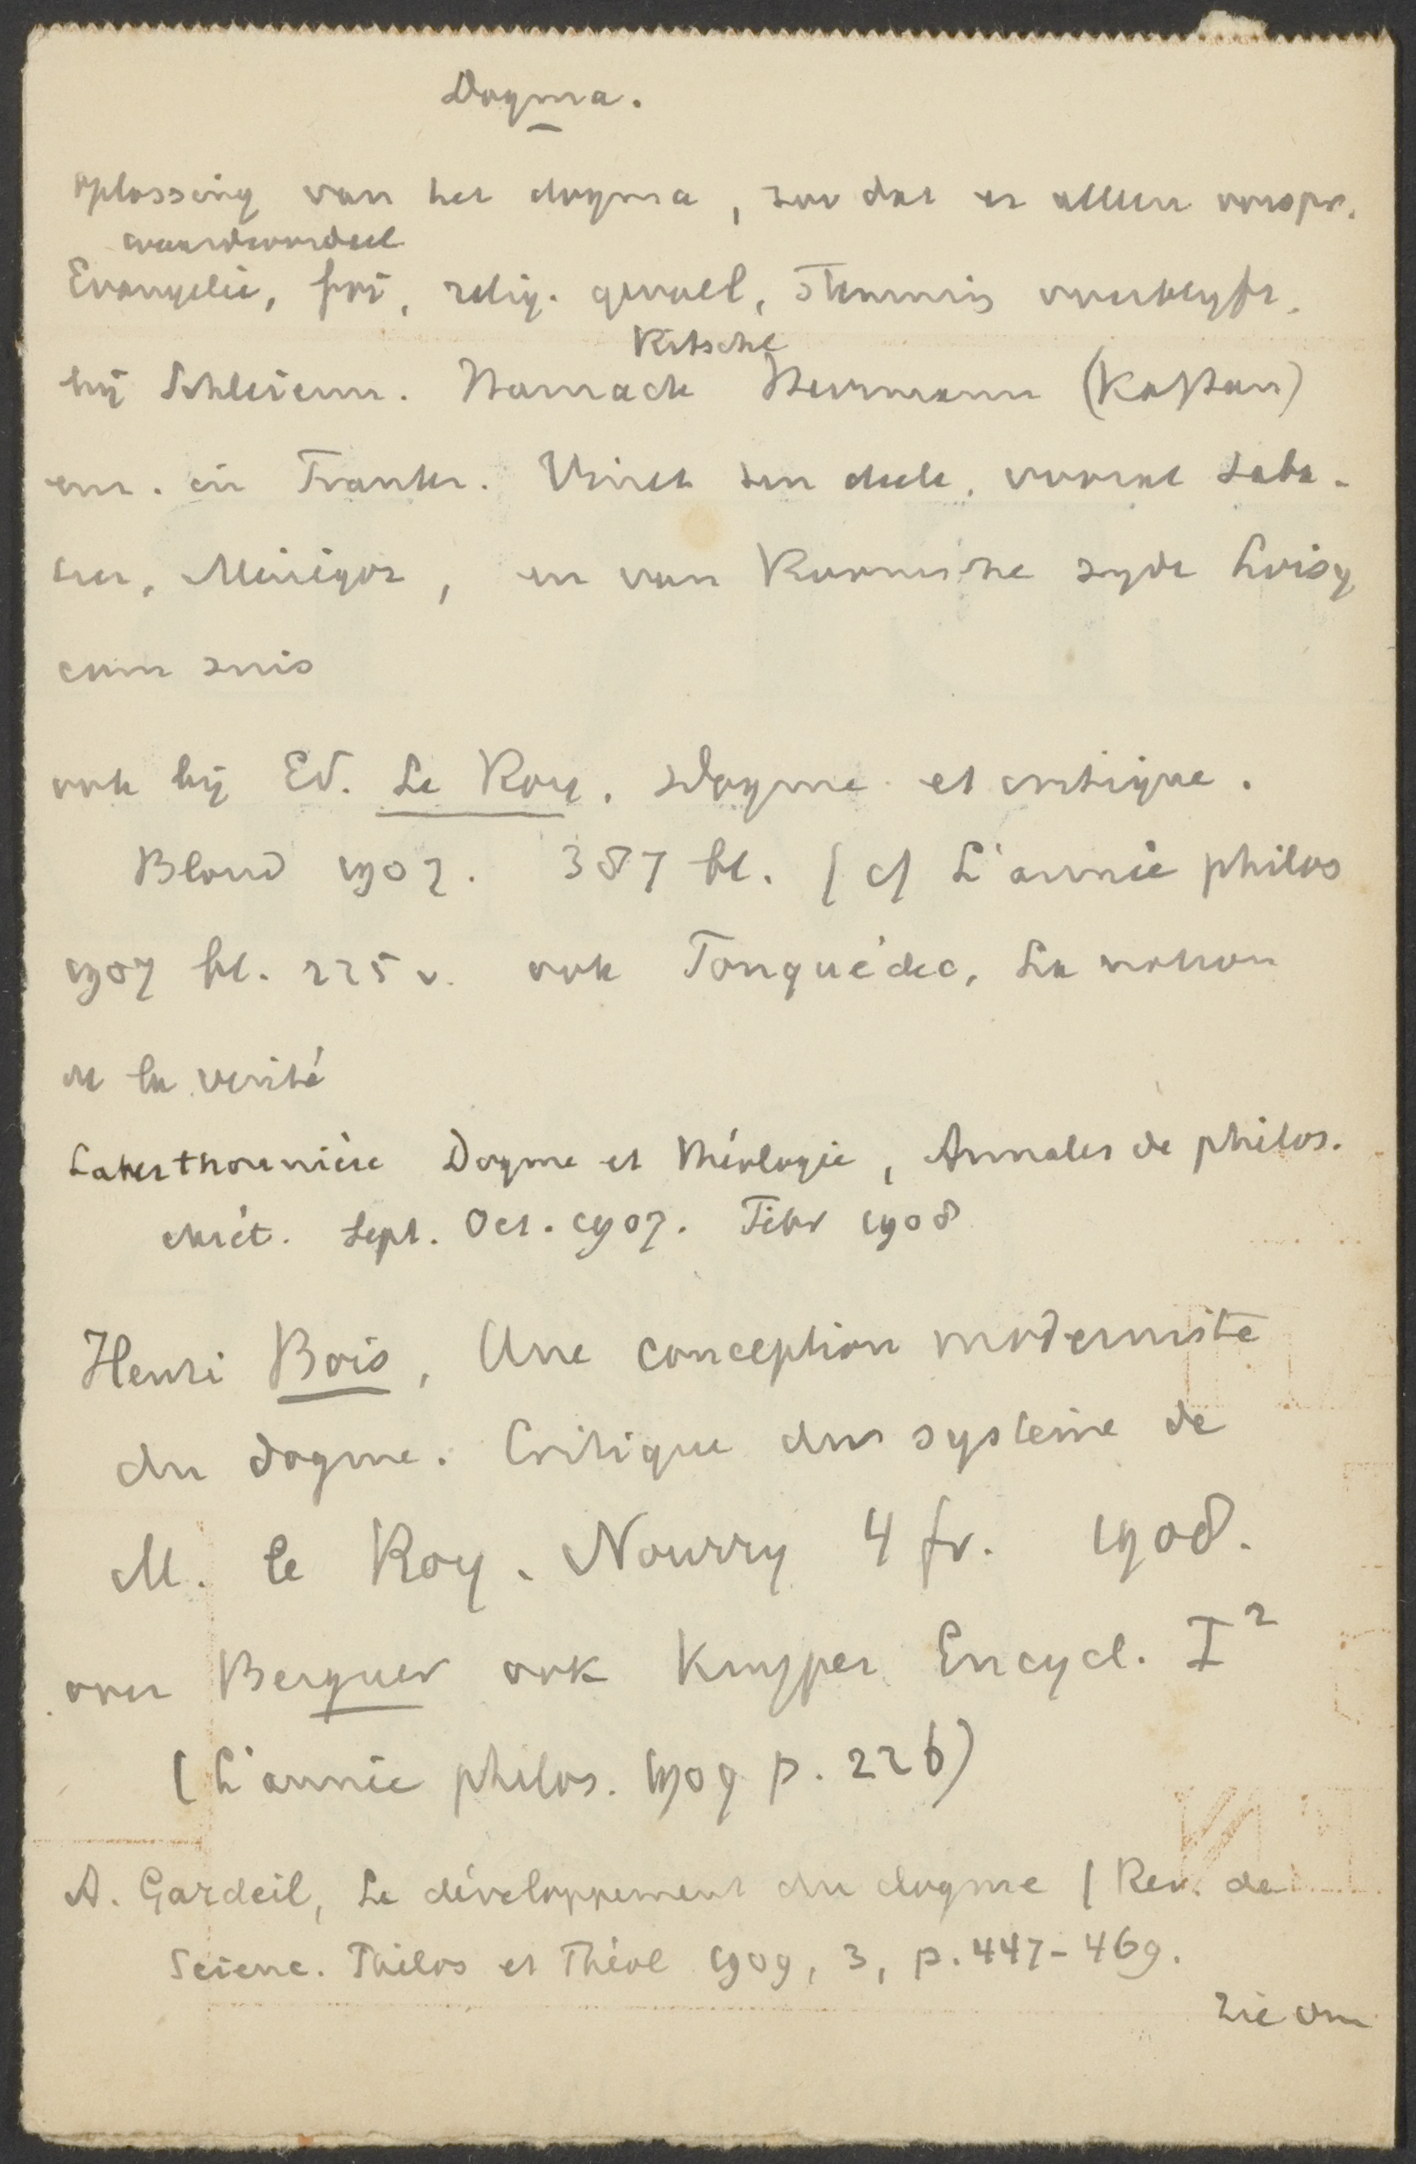 Dogma.
oplossing van het dogma, zoo dat er alleen oorspr.
waardeoordeel
Evangelie, foi, relig. gevoel, stemmig overblyft.
Ritschl
bij Schleierm. Harnack Herrmann (Kaftan)
enz. in Frankr. Vinet ten deele, vooral Saba-
tier, Ménégoz, en van Roomsche zyde Loisy
cum suis
ook bij Ed. Le Roy. Dogme et critique.
Bloud 1907. 387 bl. (cf L'année philos
1907 bl. 225 v. ook Tonquédec, La notion
de la verité
Laberthonnière Dogme et théologie, Annales de philos.
chrét. Sept. Oct. 1907. Febr 1908
Henri Bois, Une conception moderniste
du dogme. Critique du système de
M. le Roy. Nourry 4 fr. 1908.
over Berguer ook Kuyper Encycl. I²
(L'année philos. 1909 p. 226)
A. Gardeil, Le développement du dogme (Rev. de
Scienc. Philos et Théol 1909, 3, p. 447-469.
zie om